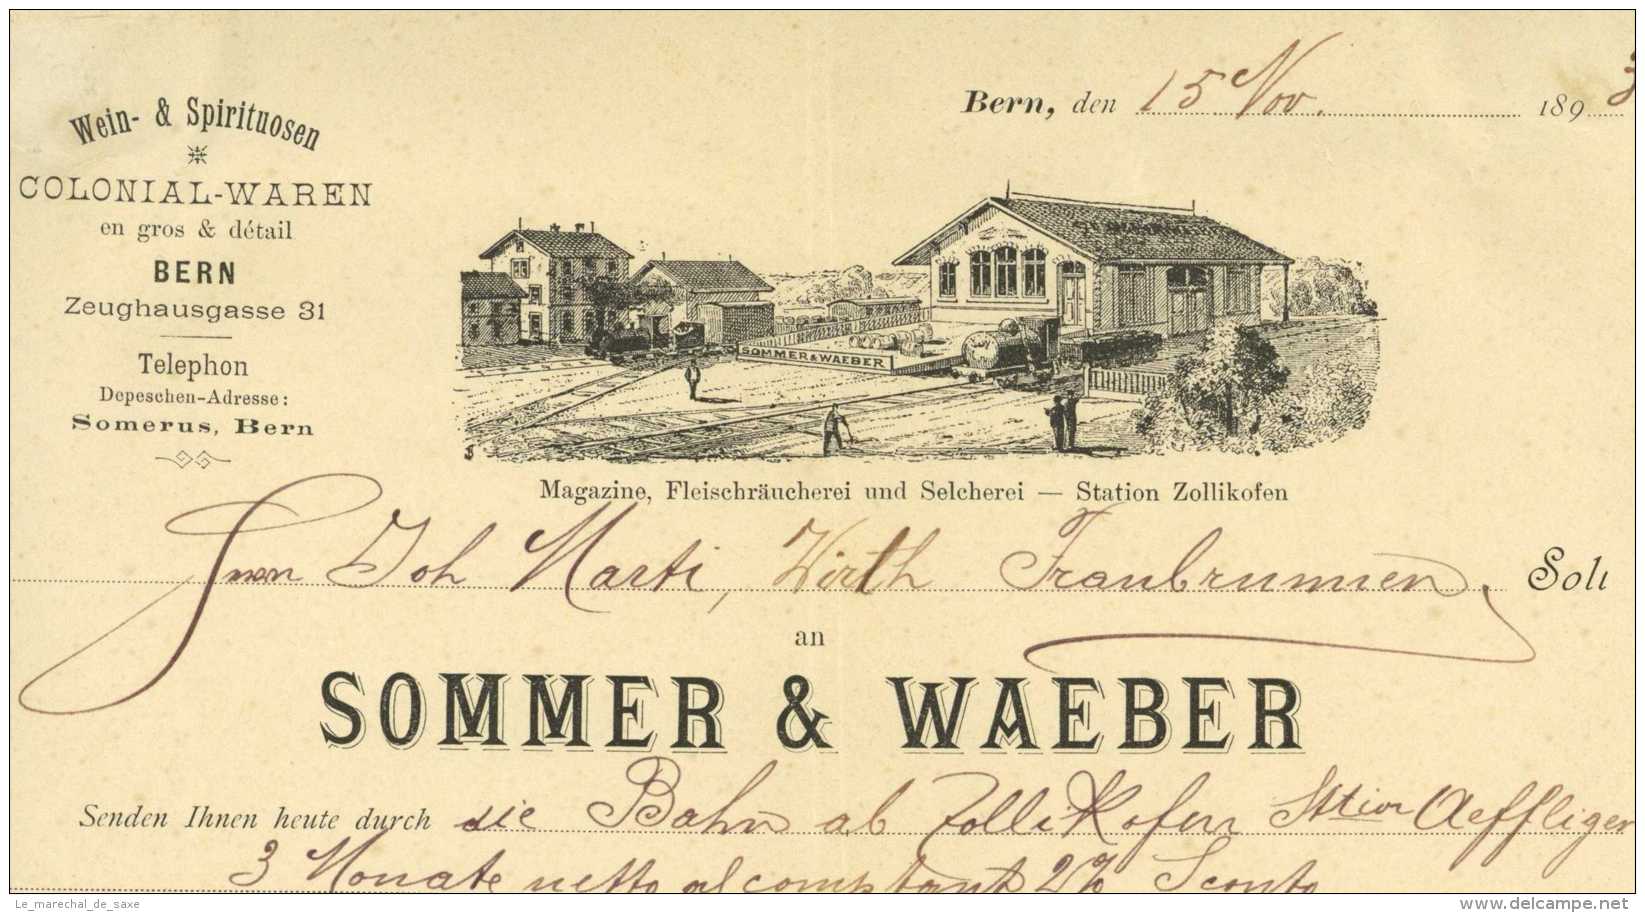 Bern, den 15 Nov. 1893
Wein- & Spirituosen
COLONIAL-WAREN
en gros & détail
BERN
Zeughausgasse 31
Telephon
Depeschen-Adresse:
Somerus, Bern
SOMMER & WAEBER
Magazine, Fleischräucherei und Selcherei — Station Zollikofen
Herrn Joh Marti, Wirth Fraubrunnen, Soll
an
SOMMER & WAEBER
Senden Ihnen heute durch die Bahn ab Zollikofen Station Aeffligen
3 Monate netto al comptant 2% Sconto
Le_marechal_de_saxe
delcampe.net